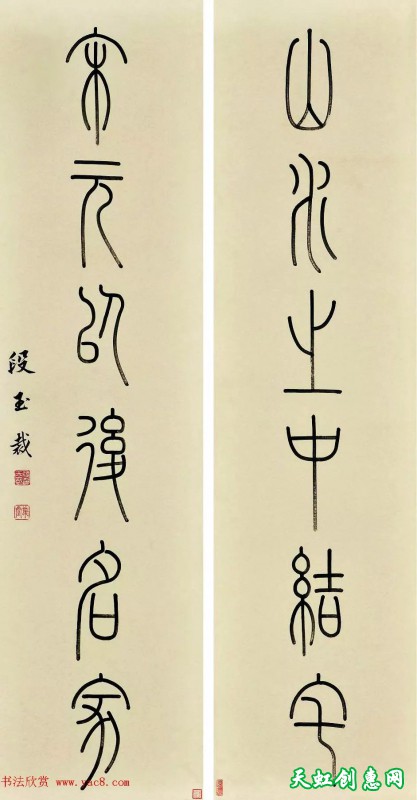 山水之中結
宋元以後名家
段玉裁
书法欣赏 www.yac8.com
天虹创惠网